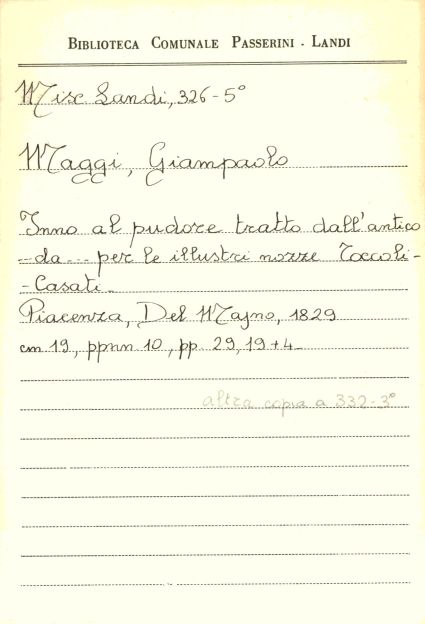 BIBLIOTECA COMUNALE PASSERINI - LANDI
Misc Landi, 326-5°
Maggi, Giampaolo
Inno al pudore tratto dall'antico
--da--- per le illustri nozze Toccoli-
-Casati.
Piacenza, Del Majno, 1829
cm 19, ppnn 10, pp. 29, 19+4-
altra copia a 332-3°